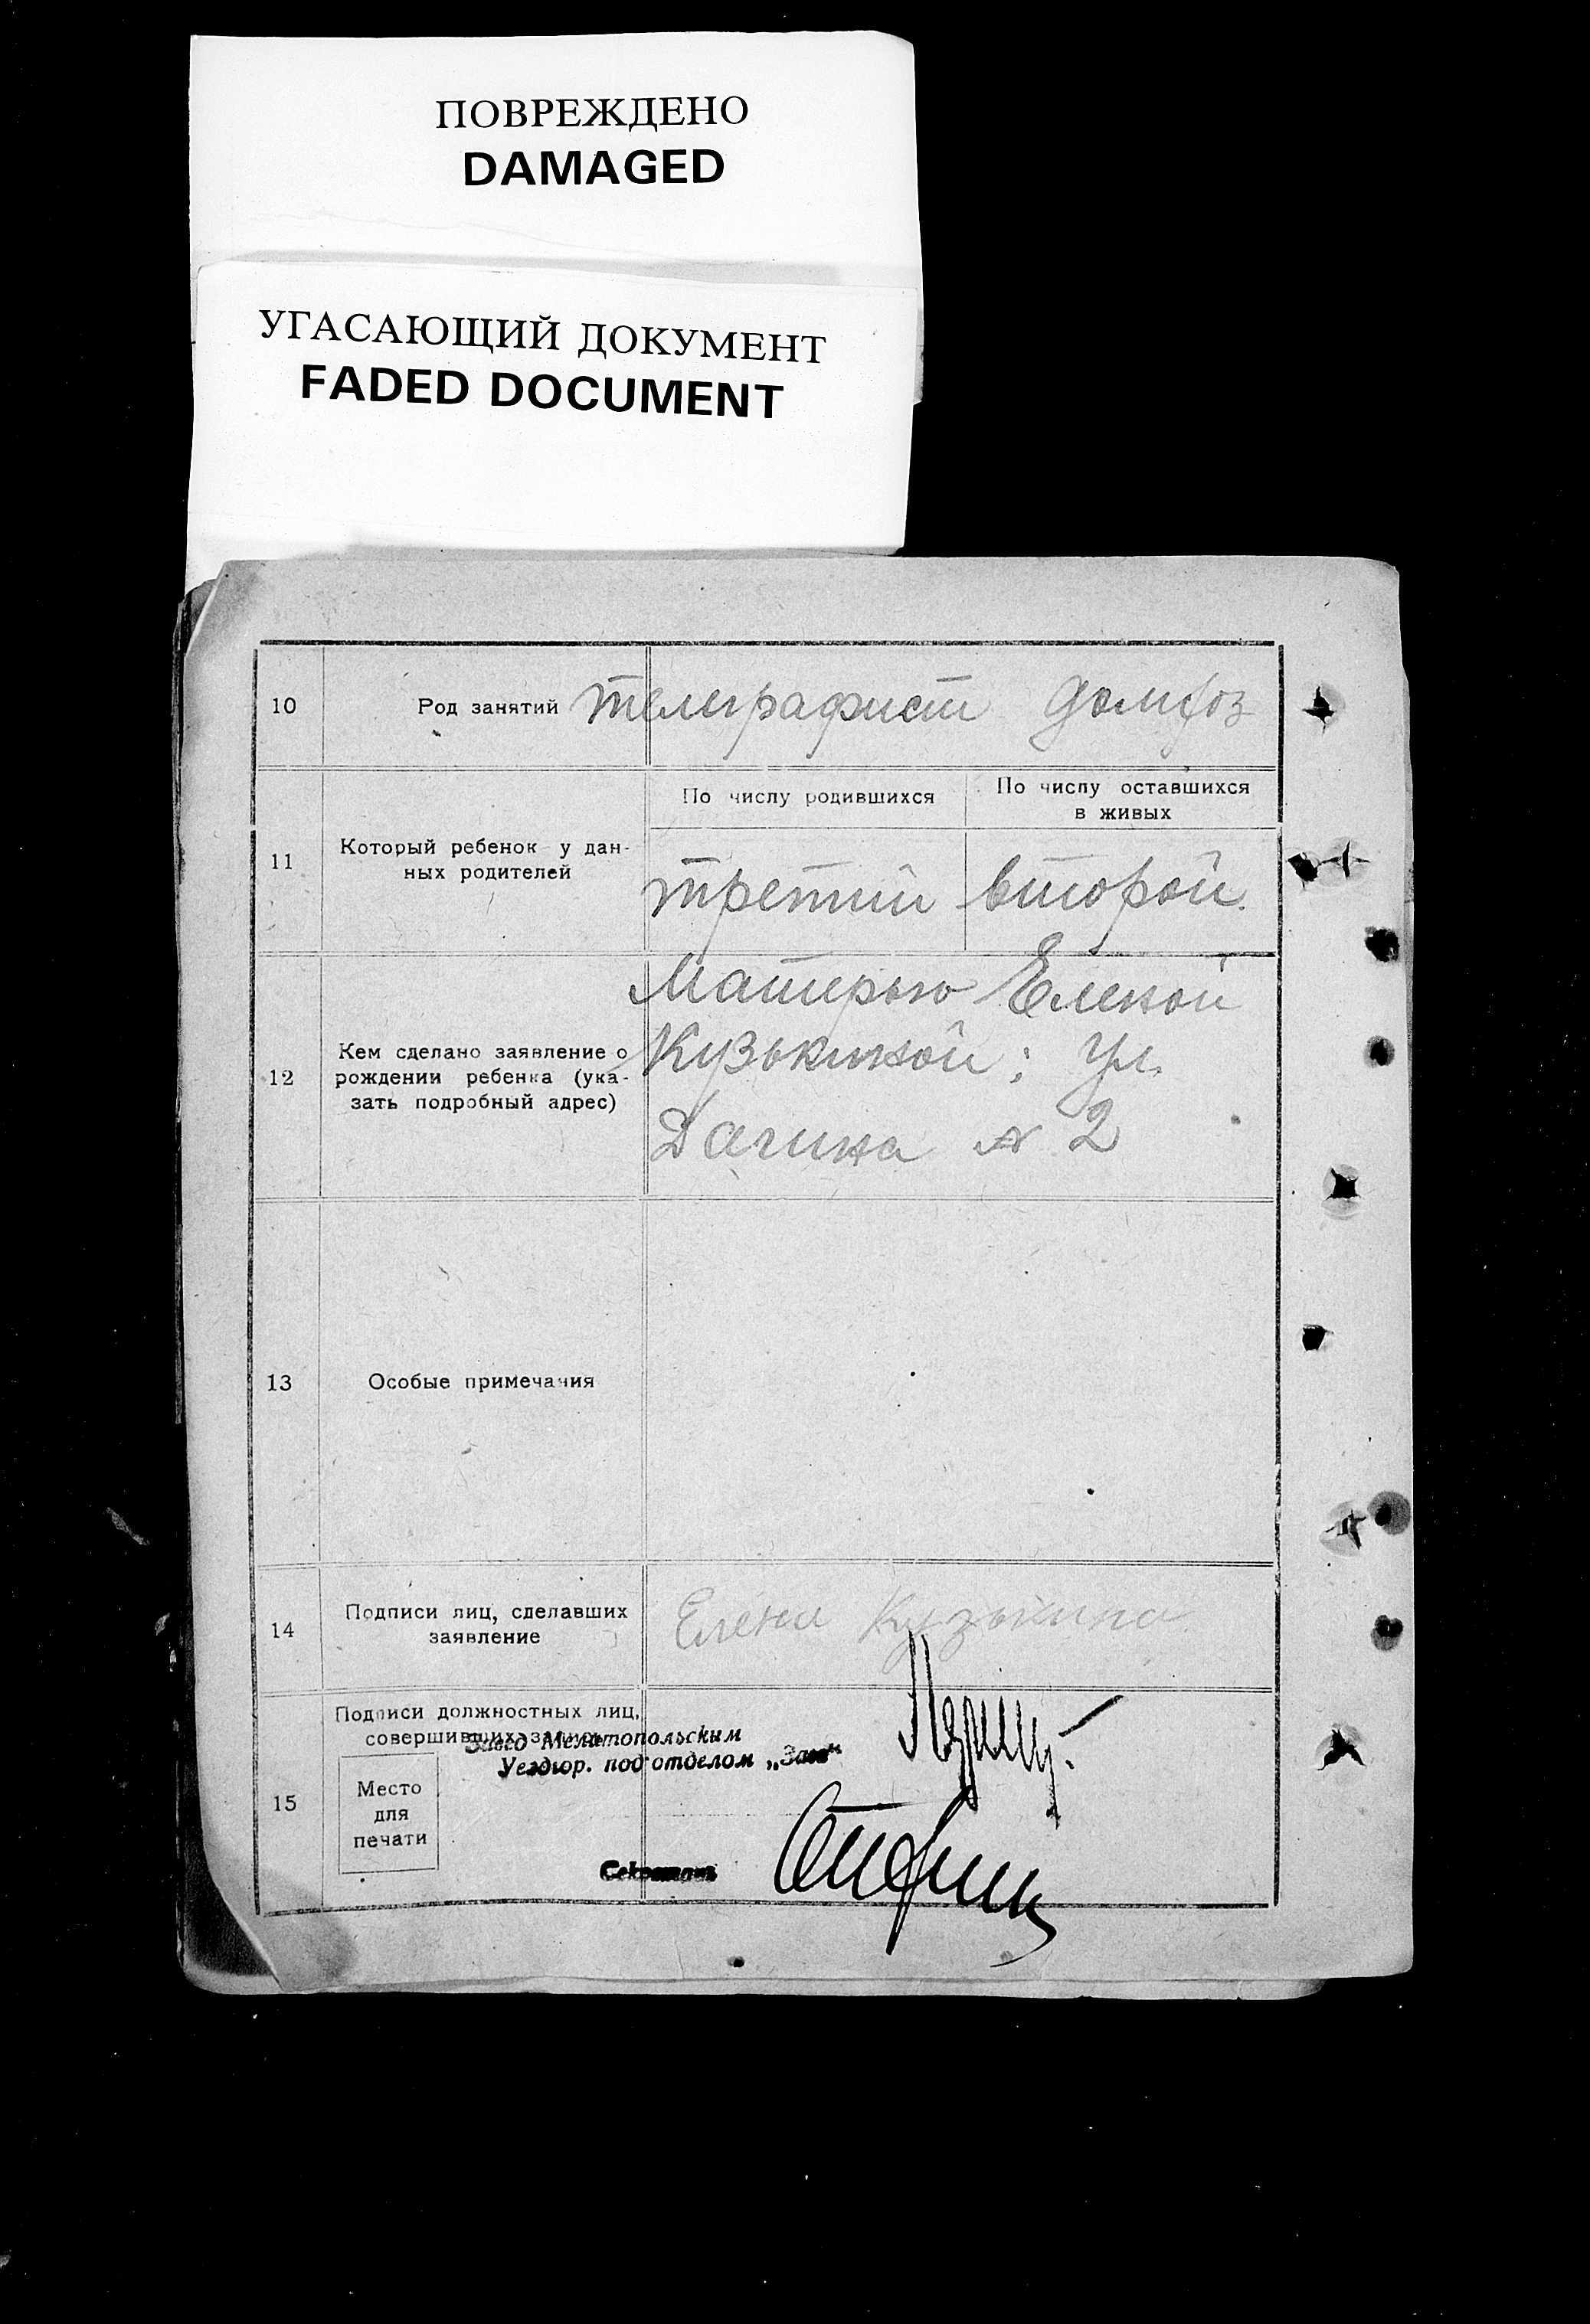 ПОВРЕЖДЕНО
DAMAGED
УГАСАЮЩИЙ ДОКУМЕНТ
FADED DOCUMENT
10 Род занятий телеграфист домхоз
По числу родившихся
По числу оставшихся
в живых
11 Который ребенок у дан-
ных родителей
третий второй.
12 Кем сделано заявление о
рождении ребенка (ука-
зать подробный адрес)
Матерью Еленой
Кузькиной; Ул.
Дагина № 2
13 Особые примечания
14 Подписи лиц, сделавших
заявление
Елена Кузькина
15 Подписи должностных лиц,
совершивших запись
Завед Мелитопольским
Уездгор. подотделом „Загс“
Место
для
печати
Секретарь